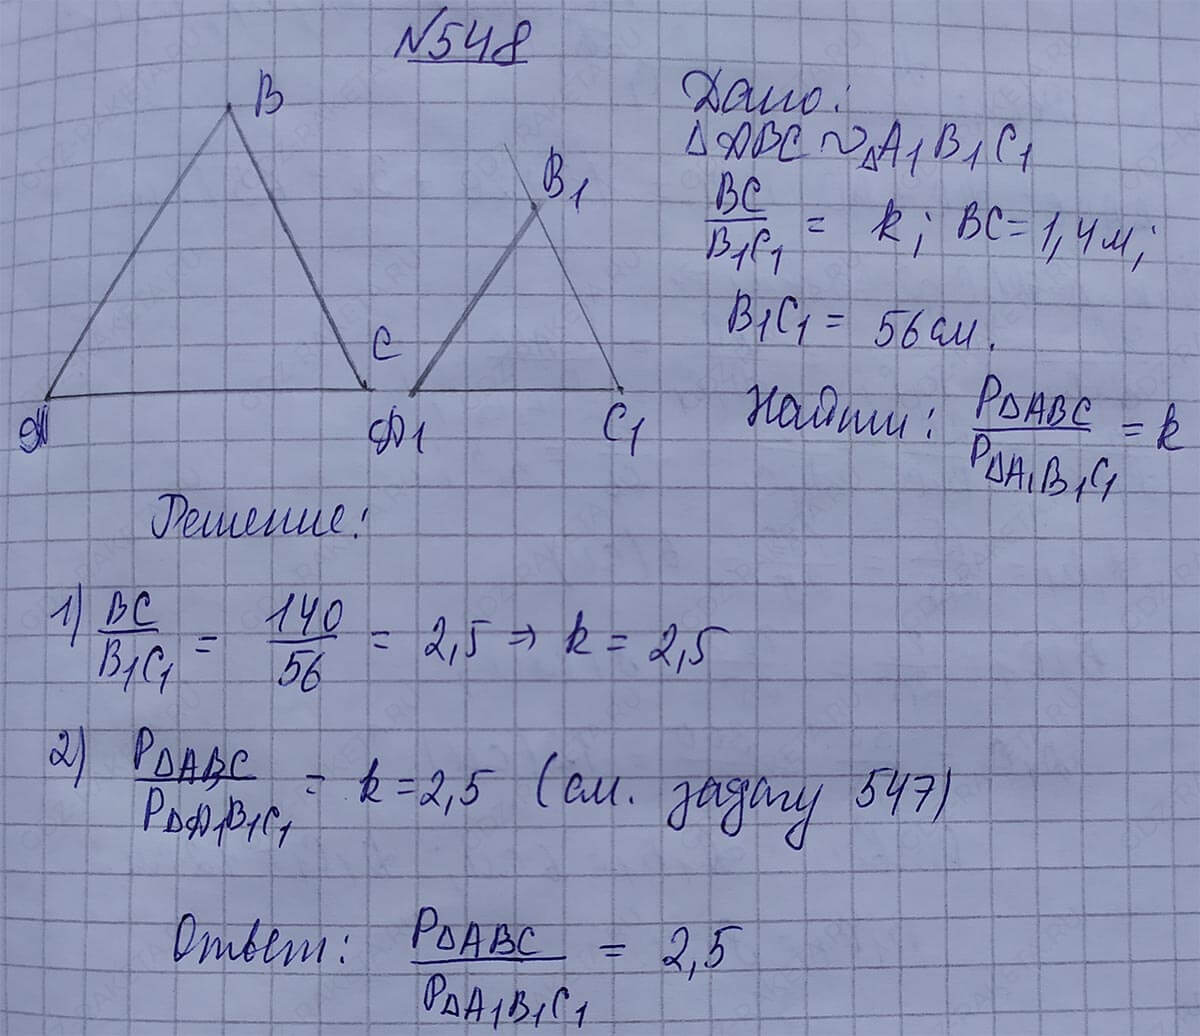 №548
B
B₁
A
C
A₁
C₁
Дано:
△ABC ~ △A₁B₁C₁
BC/B₁C₁ = k; BC = 1,4 м;
B₁C₁ = 56 см.
Найти: P△ABC/P△A₁B₁C₁ = k
Решение:
1) BC/B₁C₁ = 140/56 = 2,5 ⇒ k = 2,5
2) P△ABC/P△A₁B₁C₁ = k = 2,5 (см. задачу 547)
Ответ: P△ABC/P△A₁B₁C₁ = 2,5